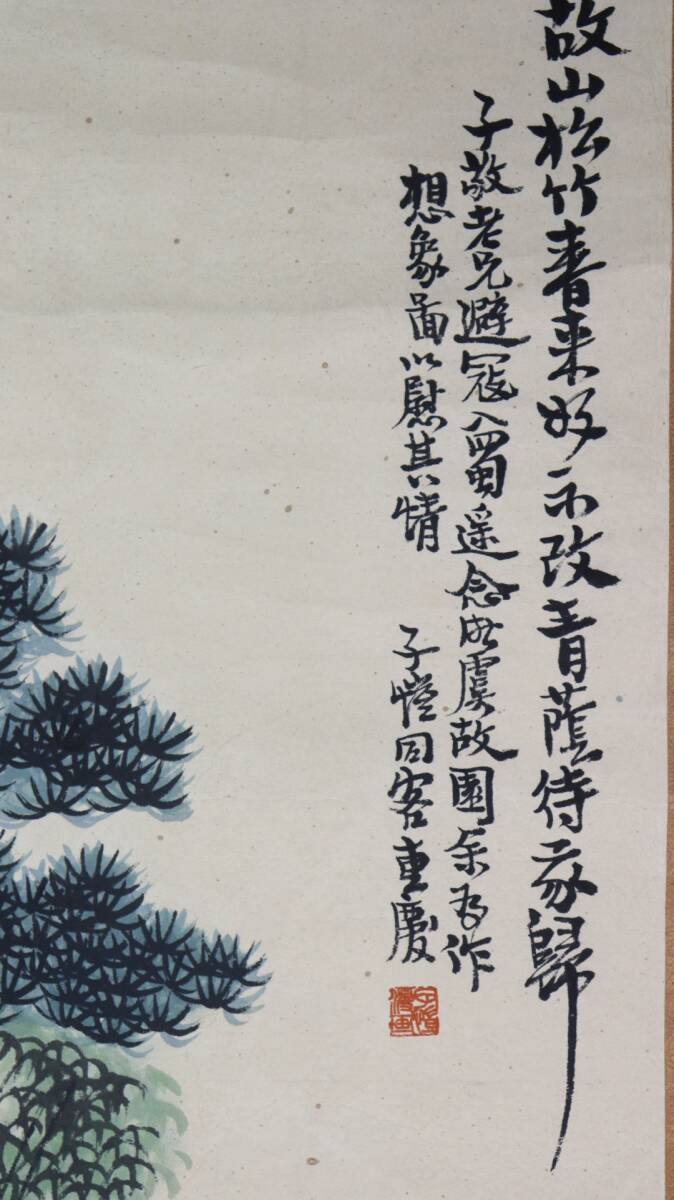 故山松竹春来好不改青蔭待我歸
子敬老兄避寇入蜀遥念此虞故園余为作
想象圖以慰其情 子愷同客重慶
子愷漫画